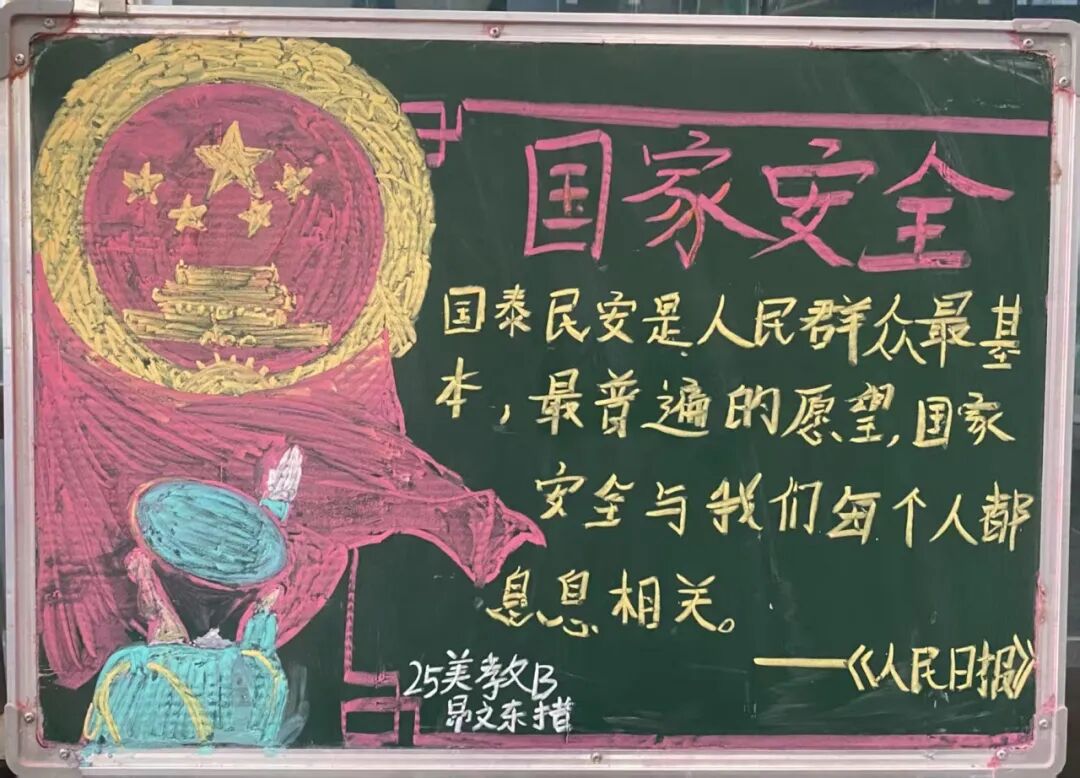 国家安全
国泰民安是人民群众最基
本,最普遍的愿望,国家
安全与我们每个人都
息息相关。
——《人民日报》
25美教B
昂文东措